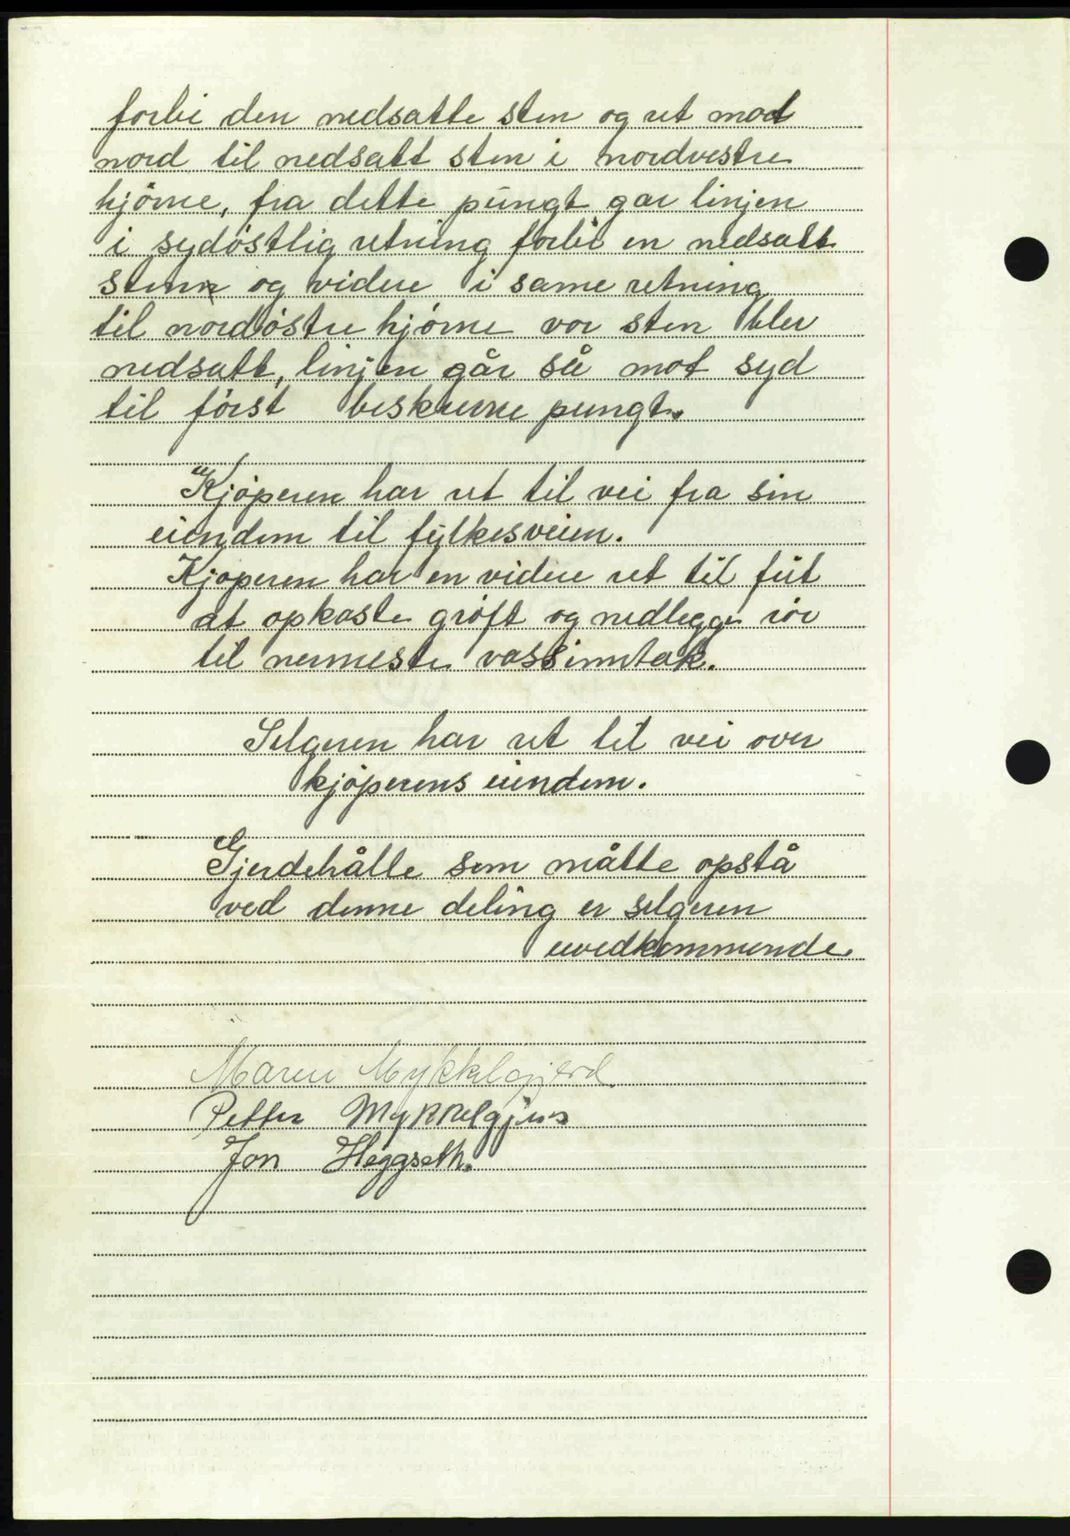 forbi den nedsatte sten og ret mod
nord til nedsatt sten i nordvestre
hjörne, fra dette pungt gar linjen
i sydöstlig retning forbi en nedsatt
sten og videre i same retning
til nordöstre hjörne vor sten blev
nedsatt, linjen går så mot syd
til först beskrevne pungt.
Kjöperen har ret til vei fra sin
eiendom til fylkesveien.
Kjøperen har en videre ret til frit
at opkaste gröft og nedlegge rör
til nermeste vassinntak.
Selgeren har ret til vei over
kjöperens eiendom.
Gjerdehålle som måtte opstå
ved denne deling er selgeren
uvedkommende
Maren Mykkelgjerd
Petter Mykkelgjerd
Jon Heggseth.